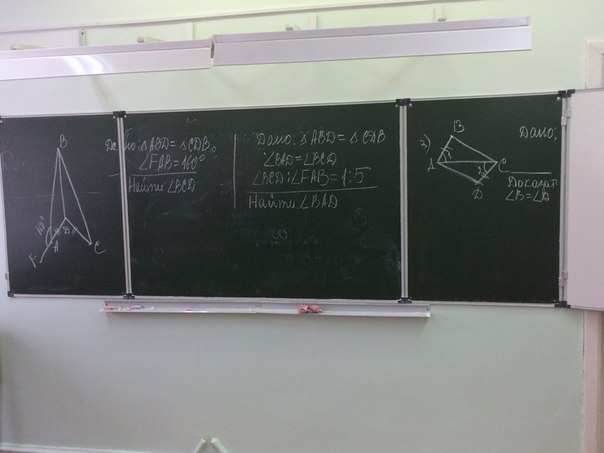 B
Дано: △ABD = △CDB.
∠FAB = 160°
Найти: ∠BCD
A
D
F
C
Дано: △ABD = △CDB
∠BAD = ∠BCD
∠BCD : ∠FAB = 1:5
Найти: ∠BAD
3)
B
A
C
D
Дано:
Доказат
∠B = ∠D